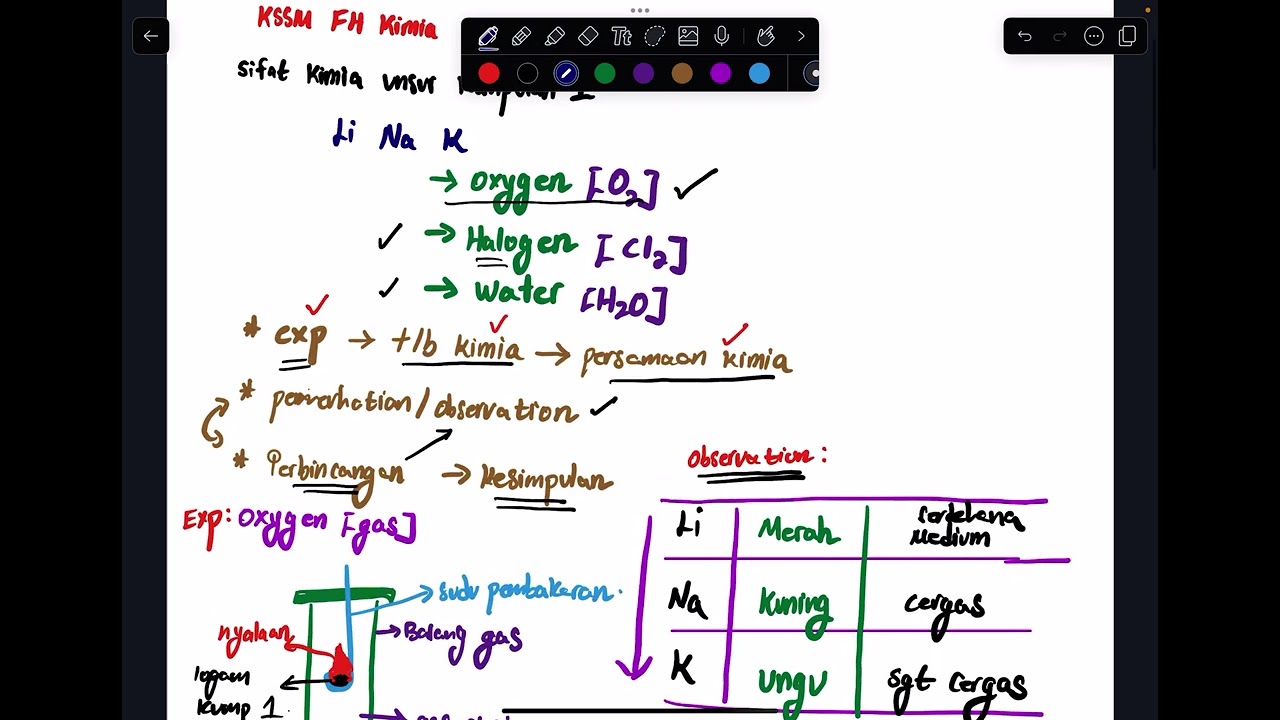 KSSM FH Kimia
Tt
sifat kimia unsur
Li Na K
→ oxygen [O₂] ✓
✓ → Halogen [Cl₂]
✓ → water [H₂O]
* exp → t/b kimia → persamaan kimia
* pemerhatian/observation ✓
* Perbincangan → kesimpulan
Exp: Oxygen [gas]
sudu pembakaran.
nyalaan
Balang gas
logam
kump 1.
Observation:
Li Merah sederhana medium
Na Kuning cergas
K ungu sgt cergas